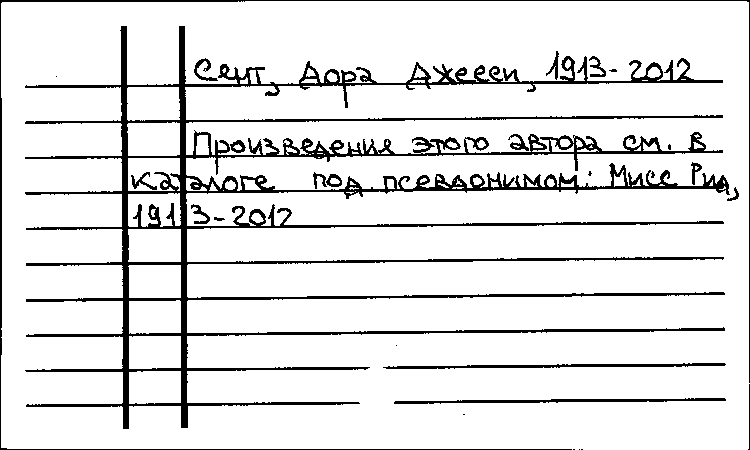 Сент, Дора Джесси, 1913-2012
Произведения этого автора см. в
каталоге под псевдонимом: Мисс Рид,
1913-2012